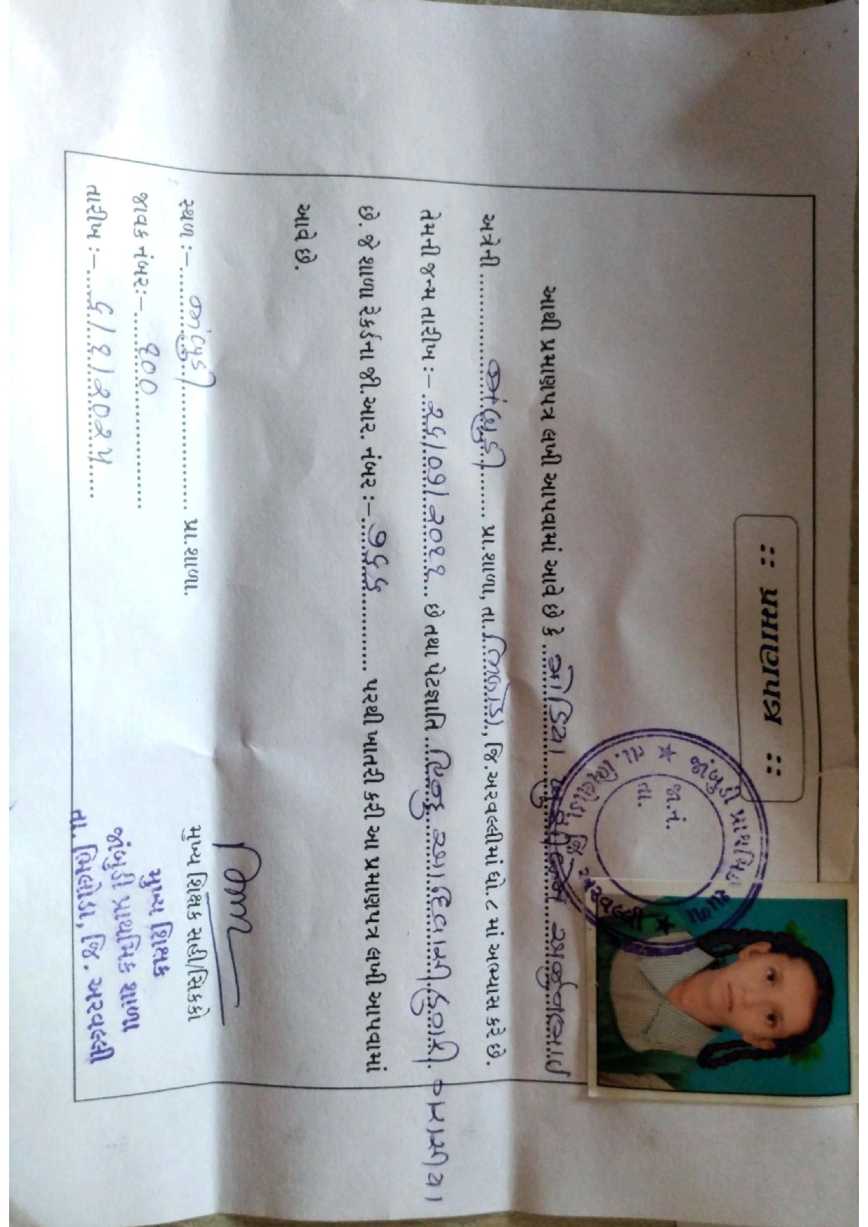 :: પ્રમાણપત્ર ::
આથી પ્રમાણપત્ર લખી આપવામાં આવે છે કે ખુશીબેન અર્જુનભાઈ
અત્રેની જાંબુડી પ્રા.શાળા, તા. ભિલોડા, જિ.અરવલ્લીમાં ધો.૮ માં અભ્યાસ કરે છે.
તેમની જન્મ તારીખ :– છે તથા પેટાજ્ઞાતિ હિન્દુ આદિવાસી ડુંગરી
છે. જે શાળા રેકર્ડના જી.આર. નંબર :– પરથી ખાતરી કરી આ પ્રમાણપત્ર લખી આપવામાં
આવે છે.
સ્થળ :– જાંબુડી પ્રા.શાળા.
જાવક નંબર:– ૧૦૦
તારીખ :– ૬/૧/૨૦૨૫
મુખ્ય શિક્ષક સહી/સિક્કો
મુખ્ય શિક્ષક
જાંબુડી પ્રાથમિક શાળા
તા. ભિલોડા, જિ. અરવલ્લી
જાંબુડી પ્રાથમિક શાળા
જા.નં.
તા.
તા. ભિલોડા, જિ. અરવલ્લી